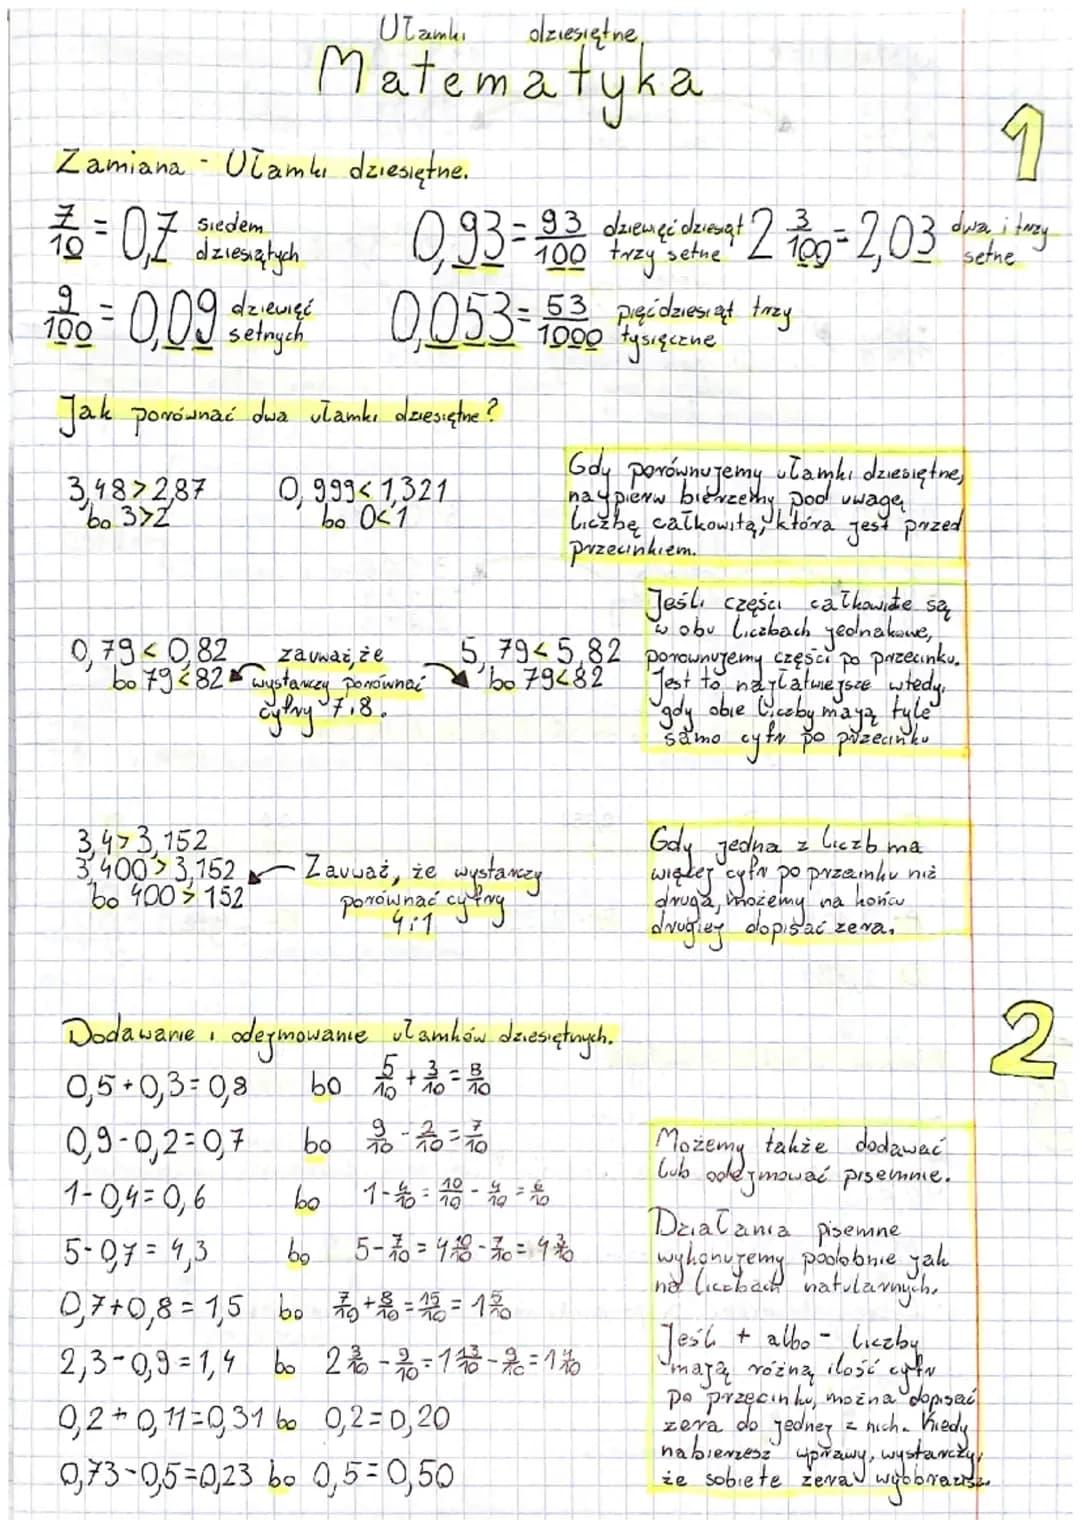 Ułamki dziesiętne
Matematyka
1
Zamiana - Ułamki dziesiętne.
7/10 = 0,7 siedem dziesiątych
0,93 = 93/100 dziewięćdziesiąt trzy setne
2 3/100 = 2,03 dwa i trzy setne
9/100 = 0,09 dziewięć setnych
0,053 = 53/1000 pięćdziesiąt trzy tysięczne
Jak porównać dwa ułamki dziesiętne?
3,48 > 2,87
bo 3>2
0,999 < 1,321
bo 0<1
Gdy porównujemy ułamki dziesiętne,
najpierw bierzemy pod uwagę
liczbę całkowitą, która jest przed
przecinkiem.
0,79 < 0,82
bo 79 < 82
zauważ, że
wystarczy porównać
cyfry 7 i 8.
5,79 < 5,82
bo 79<82
Jeśli części całkowite są
w obu liczbach jednakowe,
porównujemy części po przecinku.
Jest to najłatwiejsze wtedy,
gdy obie liczby mają tyle
samo cyfr po przecinku
3,4 > 3,152
3,400 > 3,152
bo 400 > 152
Zauważ, że wystarczy
porównać cyfry
4 i 1
Gdy jedna z liczb ma
więcej cyfr po przecinku niż
druga, możemy na końcu
drugiej dopisać zera.
2
Dodawanie i odejmowanie ułamków dziesiętnych.
0,5 + 0,3 = 0,8 bo 5/10 + 3/10 = 8/10
0,9 - 0,2 = 0,7 bo 9/10 - 2/10 = 7/10
1 - 0,4 = 0,6 bo 1 - 4/10 = 10/10 - 4/10 = 6/10
5 - 0,7 = 4,3 bo 5 - 7/10 = 4 10/10 - 7/10 = 4 3/10
0,7 + 0,8 = 1,5 bo 7/10 + 8/10 = 15/10 = 1 5/10
2,3 - 0,9 = 1,4 bo 2 3/10 - 9/10 = 1 13/10 - 9/10 = 1 4/10
0,2 + 0,11 = 0,31 bo 0,2 = 0,20
0,73 - 0,5 = 0,23 bo 0,5 = 0,50
Możemy także dodawać
lub odejmować pisemnie.
Działania pisemne
wykonujemy podobnie jak
na liczbach natularnych.
Jeśli + albo - liczby
mają różną ilość cyfr
po przecinku, można dopisać
zera do jednej z nich. Kiedy
nabierzesz wprawy, wystarczy,
że sobie te zera wyobrazisz.